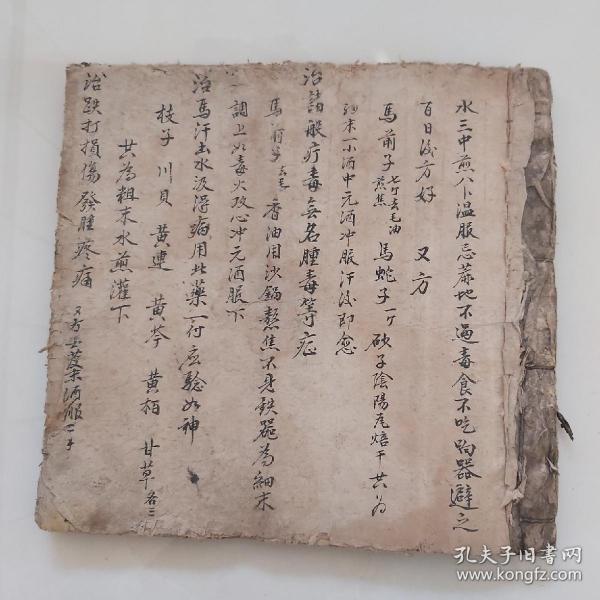 水三中煎八卜温服忌蔴地不過毒食不吃 器避之
百日後方好 又方
馬前子 七个去毛油煎焦 馬蛇子一个 砍子陰陽瓦焙干共为
細末一小酒中元酒冲服汗後即愈
治諸般疔毒無名腫毒等症
馬前子 去毛 香油用沙鍋熬焦不見鉄器為細末
調上如毒火攻心冲元酒服下
治馬汗出水汲澤病用此藥一付应驗如神
枝子 川貝 黄連 黄芩 黄栢 甘草 各三
共為粗末水煎灌下
治跌打損傷發腫疼痛 又方 末酒服
孔夫子旧书网
www.kongfz.com